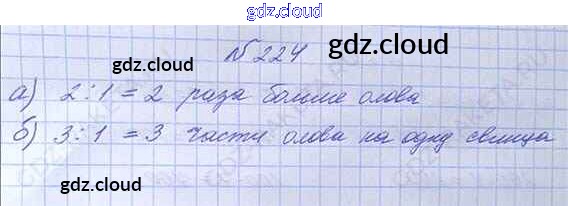 gdz.cloud
№224 gdz.cloud
gdz.cloud
а) 2:1 = 2 раза больше олова
б) 3:1 = 3 части олова на одну свинца
gdz.cloud